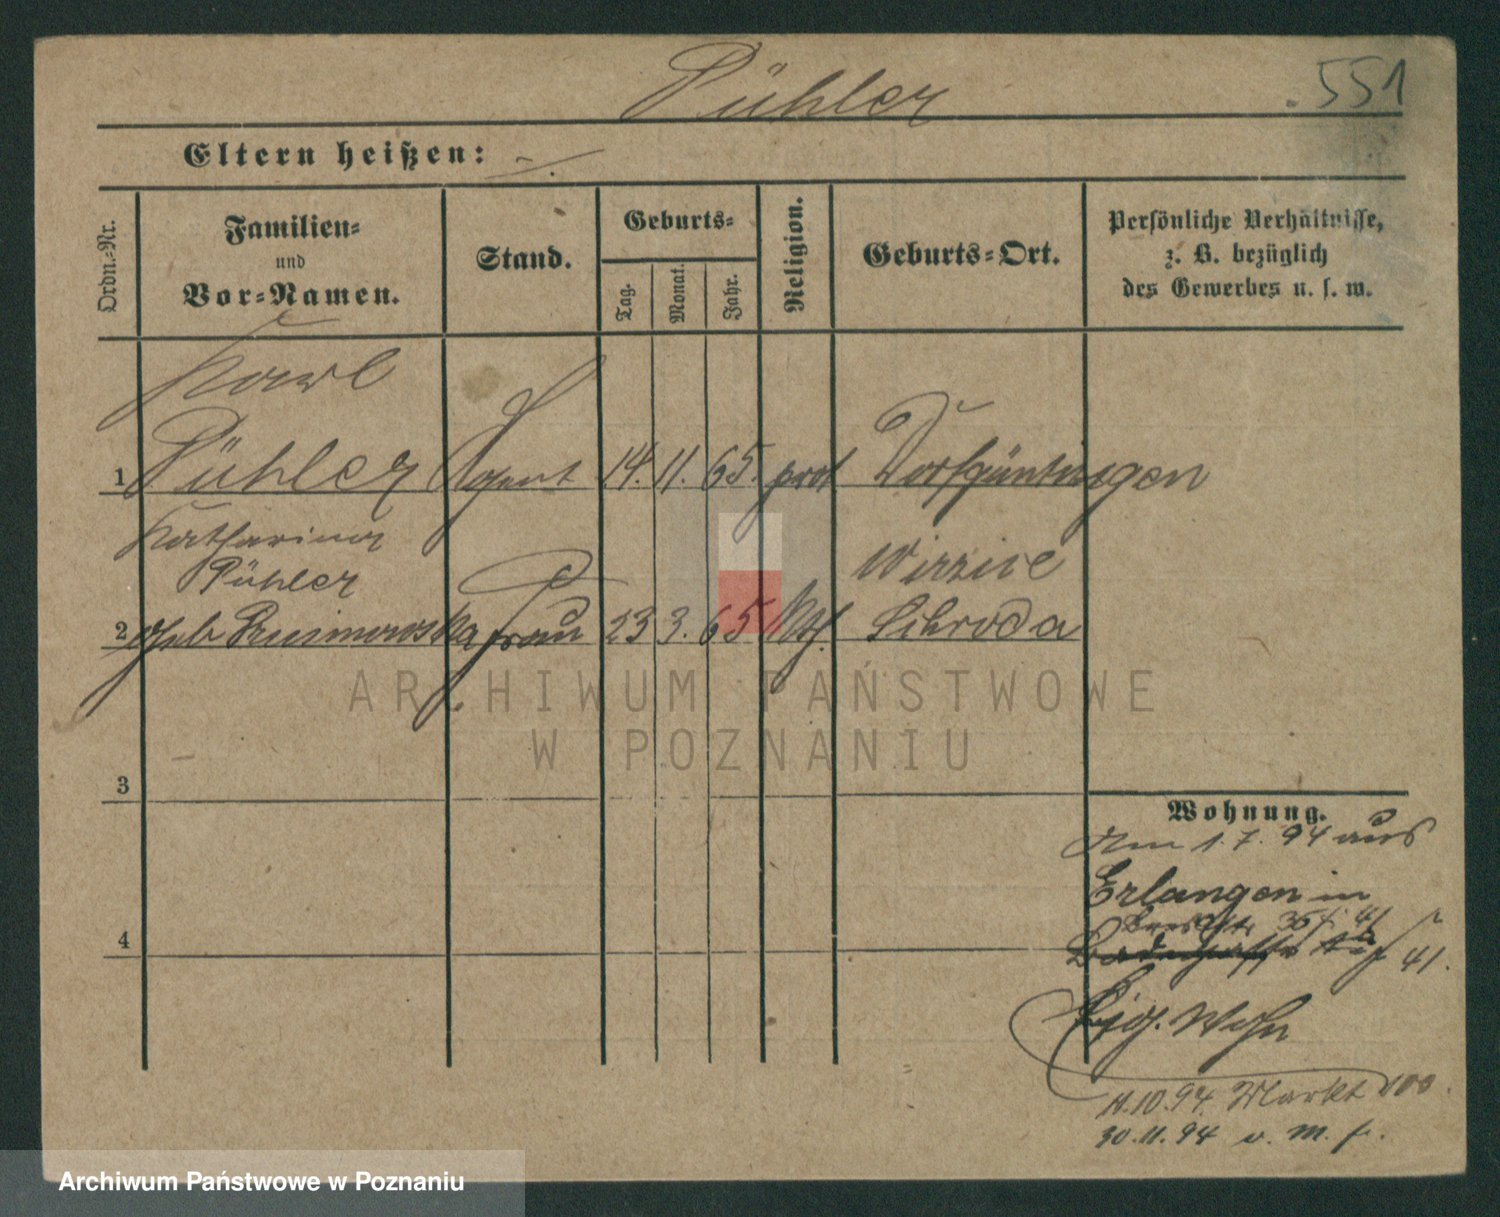 Pühler
551
Eltern heißen:
Ordn.-Nr.
Familien-
und
Vor-Namen.
Stand.
Geburts-
Tag.
Monat.
Jahr.
Religion.
Geburts-Ort.
Persönliche Verhältnisse,
z. B. bezüglich
des Gewerbes u. s. w.
Karl
1 Pühler Agent 14. 11. 65. prot
Katharina
Pühler
Wirzice
2 geb Frau 23 3. 65 kth. Schroda
ARCHIWUM PAŃSTWOWE
W POZNANIU
3
Wohnung.
Am 1. 7. 94 aus
Erlangen in
4
41.
Eig. Wohn
11.10.94. Markt 100.
30.11.94 v. M. f.
Archiwum Państwowe w Poznaniu